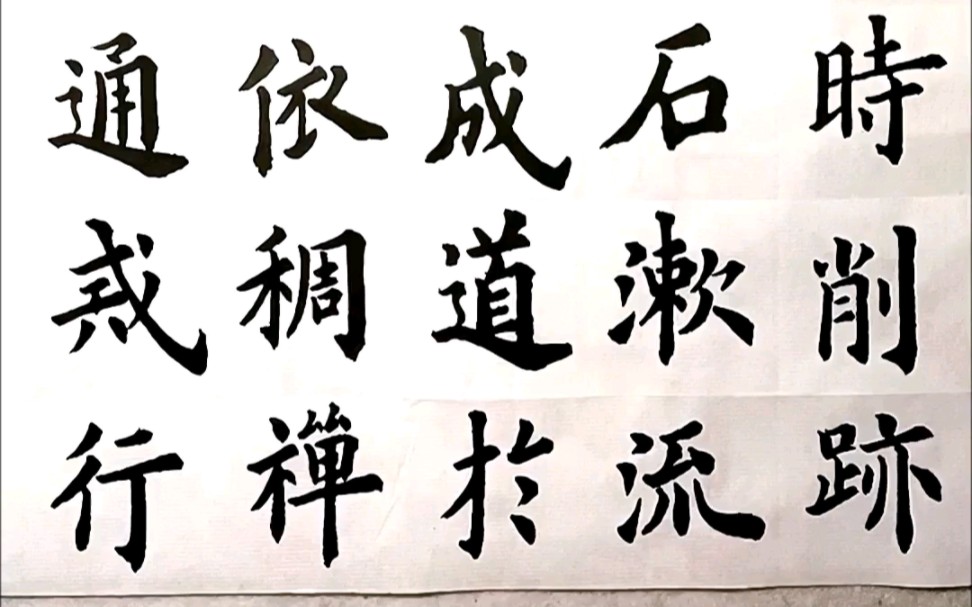 時削跡
石漱流
成道於
依稠禪
通戒行